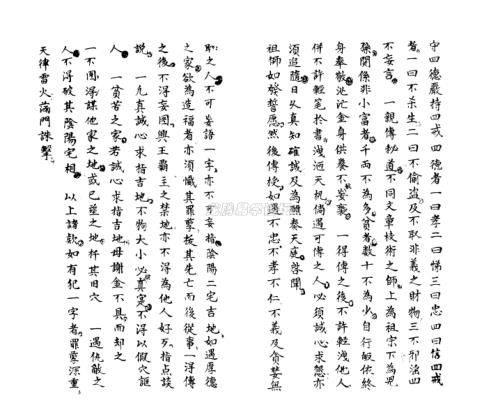 守四德嚴持四戒四德者一曰孝二曰悌三曰忠四曰信四戒
者一曰不杀生二曰不偷盗及不取非義之財物三不邪淫四
不妄言 一親傳幼道不同文章技術之師上為祖宗下為兒
孫関係非小富者千両不為多貧者数十不為少自行皈依終
身奉敬 金身供養不妄褻 一得傳之後不許輕洩他人
併不許輕筆於書洩迊天机倘遇可傳之人必須誠心求懇亦
須追隨日久真知確誠及為願奏天庭啓聞
祖師如發誓愿然後傳授如遇不忠不孝不仁不義及貪婪無
恥之人不可妄語一字亦不可妄指陰陽二宅吉地如遇厚德
之家欲為造福者亦須懺其罪孽拔其先亡而後從事一得傳
之後不得妄圖興王霸主之禁地亦不得為他人好歹指点談
説 一凡真誠心求指吉地不拘大小必真實不得以假穴誑
人 一貧苦之家若誠心求指吉地毋謝金不具而却之
一不圖得謀他家之地或已塟之地扦其旧穴 一遇仇敵之
人不得破其陰陽宅相 以上諸款如有犯一字者罪孽深重
天律雷火滿門誅擊